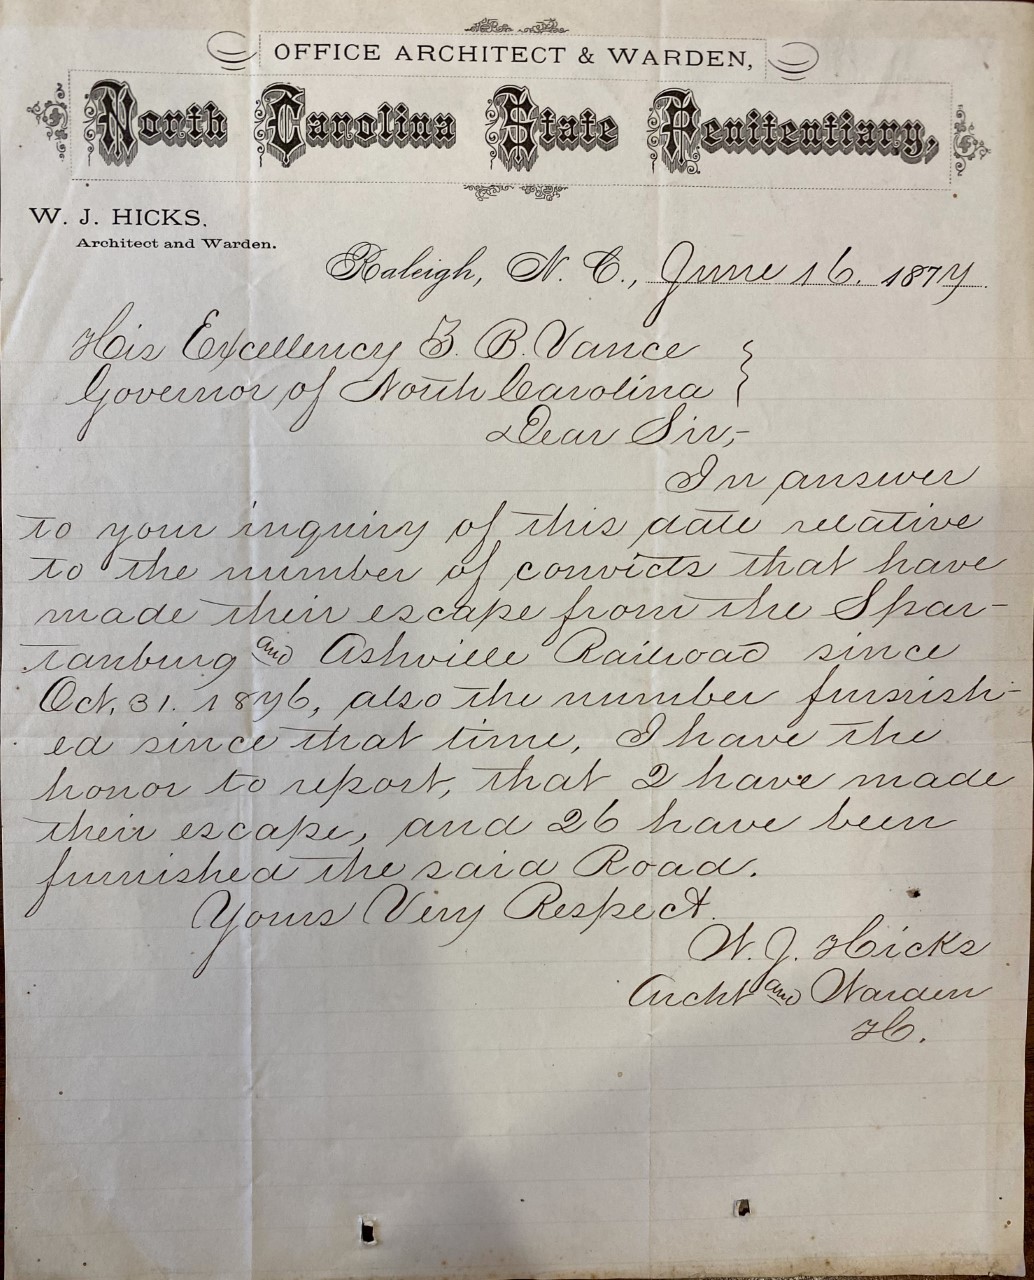 OFFICE ARCHITECT & WARDEN,
North Carolina State Penitentiary,
W. J. HICKS,
Architect and Warden.
Raleigh, N. C., June 16. 1877.
His Excellency Z. B. Vance
Governor of North Carolina
Dear Sir,-
In answer
to your inquiry of this date relative
to the number of convicts that have
made their escape from the Spar-
tanburg and Ashville Railroad since
Oct. 31. 1876, also the number furnish-
ed since that time, I have the
honor to report, that 2 have made
their escape, and 26 have been
furnished the said Road.
Yours Very Respect.
W. J. Hicks
Archt and Warden
H.